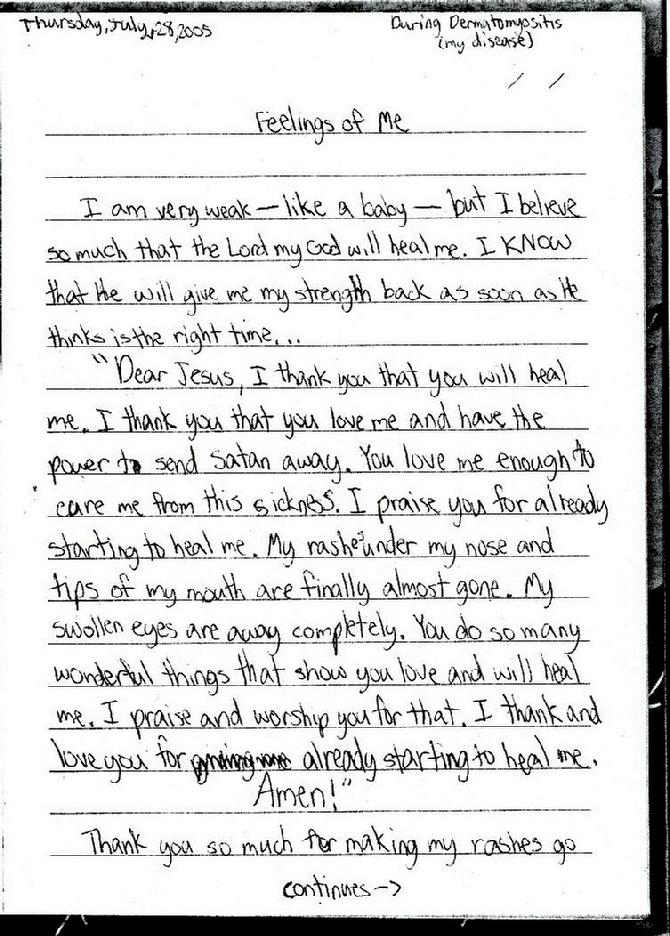 Thursday, July, 28, 2005
During Dermytomyositis
(my disease)
Feelings of Me
I am very weak — like a baby — but I believe
so much that the Lord my God will heal me. I KNOW
that He will give me my strength back as soon as He
thinks is the right time...
"Dear Jesus, I thank you that you will heal
me. I thank you that you love me and have the
power to send Satan away. You love me enough to
cure me from this sickness. I praise you for already
starting to heal me. My rashes under my nose and
tips of my mouth are finally almost gone. My
swollen eyes are away completely. You do so many
wonderful things that show you love and will heal
me. I praise and worship you for that. I thank and
love you for already starting to heal me.
Amen!"
Thank you so much for making my rashes go
continues ->